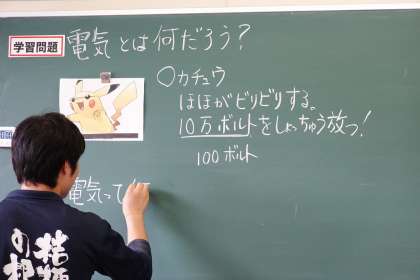 学習問題
電気とは何だろう?
○カチュウ
ほほがビリビリする。
10万ボルトをしょっちゅう放つ!
100ボルト
電気って